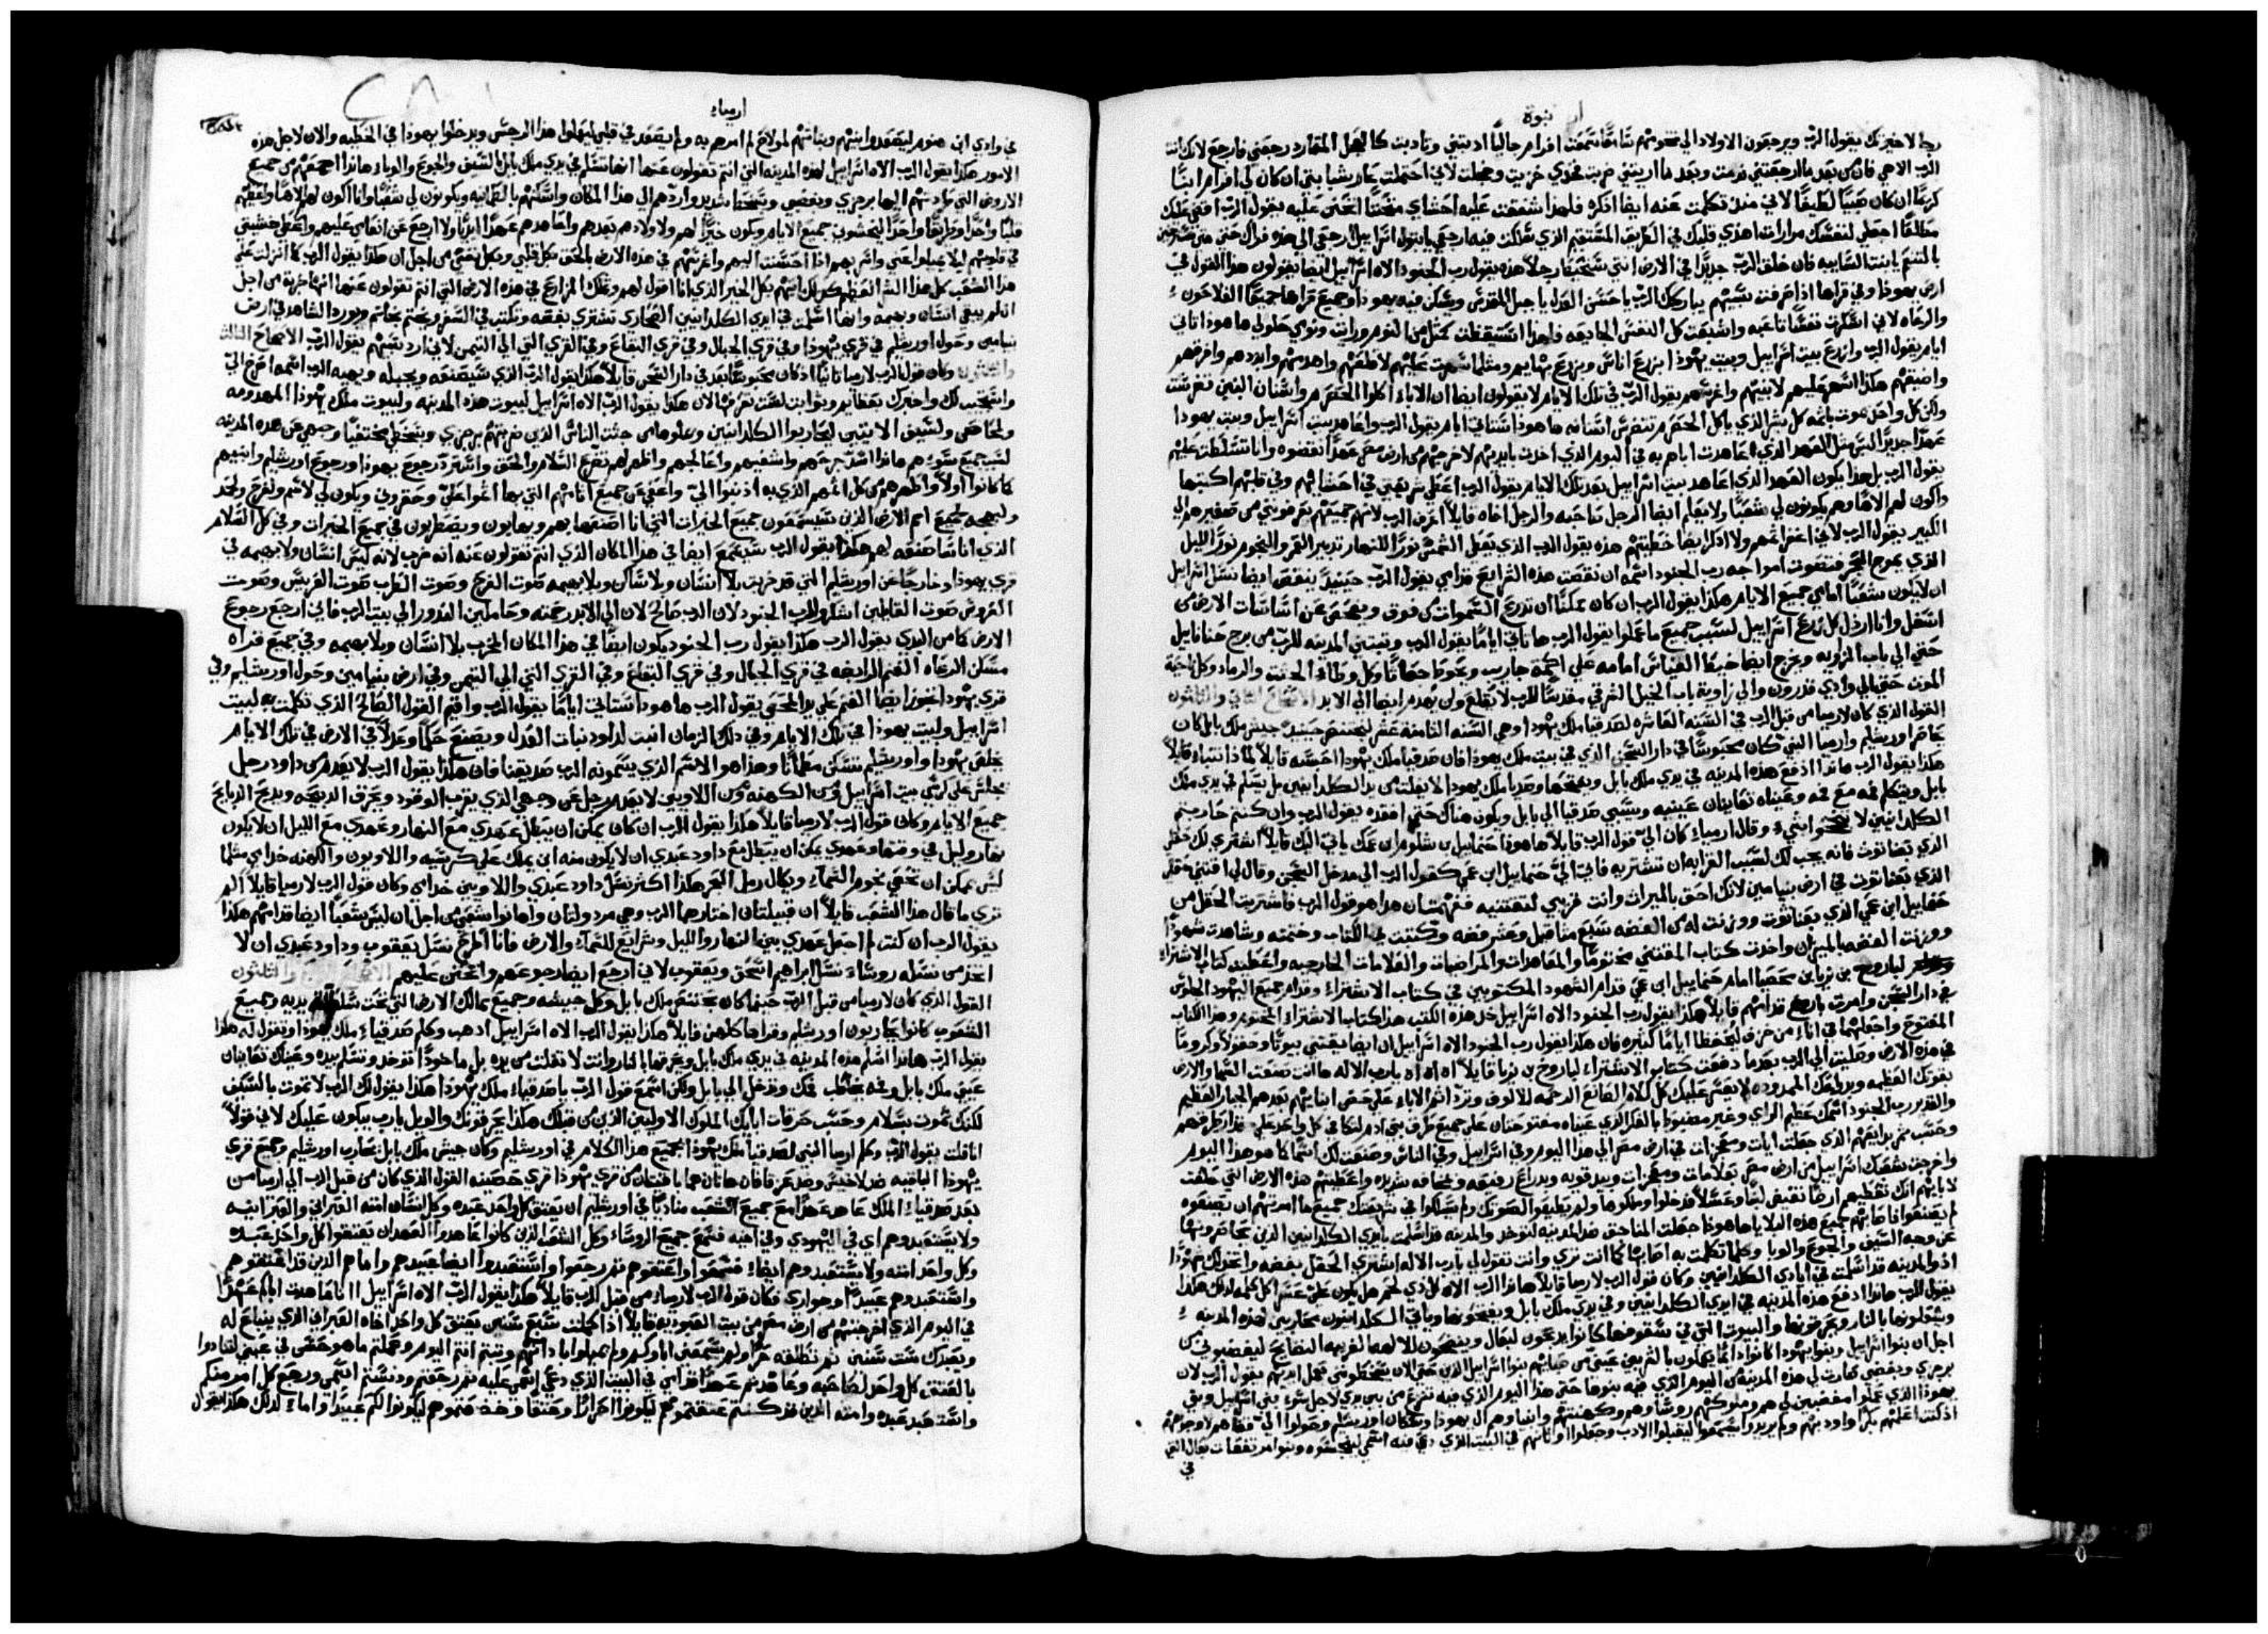 نبوة
رجا لاخرتك يقول الرب ويرجعون الاولاد الي تخومهم سامعًا سمعت افرام جاليًا ادبتني وتادبت كالعجل ارجعني فارجع لانك انت
الرب الاهي فان من بعد ما ارجعتني ندمت وبعد ما اريتني ضربت فخذي خزيت وخجلت لاني احتملت عار شبابي ان كان لي افرام ابنًا
كريمًا ان كان صبيًا لطيفًا لاني منذ تكلمت عنه ايضا اذكره فلهذا شفقت عليه احشاي يقول الرب
اجعلي لنفسك مرارات اهدي قلبك في الطريق المستقيم الذي سلكت فيه ارجعي يا بتول اسراييل ارجعي الي هذه قراك حتي متي
يا بنت السايبه فان خلق الرب جديدًا في الارض انثي رجلا هذه يقول رب الجنود الاه اسراييل ايضا يقولون هذا القول في
ارض يهوذا وفي قراها اذا صرفت سبيهم يباركك الرب يا حسن العدل يا جبل المقدس ويسكن فيه يهوذا وجميع قراها جميعًا الفلاحون
والرعاه لاني اسكرت نفسًا تاعبه واشبعت كل النفس الجايعه فلهذا استيقظت كمثل من النوم ورايت ونومي حلو لي ها هوذا تاتي
ايام يقول الرب وازرع بيت اسراييل وبيت يهوذا بزرع اناس وبزرع بهايم ومثلما سهرت عليهم لاقلعهم واهدمهم وابددهم
واضيقهم هكذا اسهر عليهم لابنيهم واغرسهم يقول الرب في تلك الايام لا يقولون ايضا ان الاباء اكلوا الحصرم واسنان البنين تضرست
ولكن كل واحد يموت باثمه كل بشر الذي ياكل الحصرم تتضرس اسنانه ها هوذا ستاتي ايام يقول الرب واعاهد بيت اسراييل وبيت يهوذا
عهدًا جديدًا ليس مثل العهد الذي عاهدت اباهم به في اليوم الذي اخذت بايديهم لاخرجهم من ارض مصر عهدًا نقضوه وانا تسلطت عليهم
يقول الرب بل هذا يكون العهد الذي اعاهد بيت اسراييل بعد تلك الايام يقول الرب اعطي شريعتي في احشايهم وفي قلبهم اكتبها
واكون لهم الاهًا وهم يكونون لي شعبًا ولا يعلم ايضا الرجل صاحبه والرجل اخاه قايلا اعرف الرب لانهم جميعهم يعرفونني من صغيرهم الي
الكبير يقول الرب لاني اغفر اثمهم ولا اذكر ايضا خطيتهم هذه يقول الرب الذي يعطي الشمس نورًا للنهار تدبير القمر والنجوم نورًا لليل
الذي يموج البحر فتصوت امواجه رب الجنود اسمه ان نقصت هذه الشرايع قدامي يقول الرب حينيذ ينقص ايضا نسل اسراييل
ان لا يكون شعبًا امامي جميع الايام هكذا يقول الرب ان كان يمكن ان تدرع السموات من فوق ويفحص عن اساسات الارض من
اسفل وانا ارذل كل زرع اسراييل لسبب جميع ما عملوا يقول الرب ها تاتي ايامًا يقول الرب وتبتني المدينه للرب من برج حنانايل
حتي الي باب الزاويه ويخرج ايضا خيط القياس امامه علي اكمة
حتي الي وادي قدرون والي زاوية باب الخيل الشرقي مقدسًا للرب لا يقلع ولن يهدم ايضا الي الابد الاصحاح الثاني والثلثون
القول الذي كان لارميا من قبل الرب في السنه العاشره لصدقيا ملك يهوذا وهي السنه الثامنة عشر لبختنصر حينيذ جيش ملك بابل كان
يحاصر اورشليم وارميا النبي كان محبوسًا في دار السجن الذي في بيت ملك يهوذا فان صدقيا ملك يهوذا احبسه قايلا لماذا تتنباء قايلا
هكذا يقول الرب هانذا ادفع هذه المدينه في يدي ملك بابل ويفتحها وصدقيا ملك يهوذا لا يفلت من يد الكلدانيين بل يسلم في يدي ملك
بابل ويتكلم فمه مع فمه وعيناه تعاينان عينيه ويسبي صدقيا الي بابل ويكون هناك حتي افقده يقول الرب وان كنتم حاربتم
الكلدانيين لا تنجحوا بشيء وقال ارمياء كان الي قول الرب قايلا ها هوذا حنمايل بن شلوم ابن عمك ياتي اليك قايلا اشتري لك حقلي
الذي بعناتوث فانه يجب لك لسبب القرابه ان تشتريه فاتي الي حنمايل ابن عمي كقول الرب الي مدخل السجن وقال لي اقتني حقلي
الذي بعناتوث في ارض بنيامين لانك احق بالميراث وانت قريبي لتقتنيه ففهمت ان هذا هو قول الرب فاشتريت الحقل من
حنمايل ابن عمي الذي بعناثوث ووزنت له من الفضه سبع مثاقيل وعشر فضه وكتبت في الكتاب وختمته وشاهدت شهودًا
ووزنت الفضه بالميزان واخذت كتاب المقتني مختومًا والمعاهدات والمراضيات والعلامات الخارجيه واعطيت كتاب الاشتراء
لباروخ بن نيريا بن محسيا امام حنمايل ابن عمي قدام الشهود المكتوبين في كتاب الاشتراء وقدام جميع اليهود الجلوس
في دار السجن وامرت باروخ قدامهم قايلا هكذا يقول رب الجنود الاه اسراييل خذ هذه الكتب هذا كتاب الاشتراء المختوم وهذا الكتاب
المفتوح واجعلهما في اناء من خزف ليحفظا ايامًا كثيره فان هكذا يقول رب الجنود الاه اسراييل ان ايضا يقتني بيوتًا وحقولا وكرومًا
في هذه الارض وصليت الي الرب بعد ما دفعت كتاب الاشتراء لباروخ بن نيريا قايلا اه اه اه يا رب الاله ها انت صنعت السما والارض
بقوتك العظيمه وبذراعك الممدوده لا يعسر عليك كل كلام الصانع الرحمه للالوف وترد اثم الاباء علي حضن ابنايهم بعدهم الجبار العظيم
والقدير رب الجنود اسمك عظيم الراي وغير مضبوط بالفكر الذي عيناه مفتوحتان علي جميع طرق بني ادم لتكافي كل واحد علي قدر طرقهم
الذي جعلت ايات ومعجزات في ارض مصر الي هذا اليوم وفي اسراييل وفي الناس وصنعت لك اسمًا كما هو هذا اليوم
واخرجت شعبك اسراييل من ارض مصر بعلامات ومعجزات وبيد قويه وبذراع رفيعه وبمخافه شديده واعطيتهم هذه الارض التي حلفت
لابايهم انك تعطيهم ارضًا تفيض لبنًا وعسلا فدخلوا وملكوها ولم يطيعوا لصوتك ولم يسلكوا في شريعتك جميع ما امرتهم ان يصنعوه
لم يصنعوا فاصابتهم جميع هذه البلايا ها هوذا جعلت المناجق ضد المدينه لتوخذ والمدينه قد اسلمت بايدي الكلدانيين الذين يحاصرونها
عن وجه السيف والجوع والوبا وكلما تكلمت به اصابها كما انت تري وانت تقول لي يا رب الاله اشتري الحقل بفضه
اذ والمدينه قد اسلمت في ايادي الكلدانيين وكان قول الرب لارميا قايلا هانذا الرب الاه كل ذي لحم هل يكون علي عسرًا كل كلمه لذلك هكذا
يقول الرب هانذا ادفع هذه المدينه في ايدي الكلدانيين وفي يدي ملك بابل ويفتحونها وياتي الكلدانيون محاربين لهذه المدينه
ويشعلونها بالنار ويحرقونها والبيوت التي في سقوفها كانوا يدعون لبعال وينضحون لالهه الغريبه النضايح ليغضبوني من
اجل ان بنوا اسراييل وبنوا يهوذا كانوا دايمًا يعملون بالشر بين عيني من صبايهم بنوا اسراييل الذين حتي الان يسخطوني بعمل ايديهم يقول الرب لان
برجزي وبغضبي صارت لي هذه المدينه من اليوم الذي فيه بنوها حتي هذا اليوم الذي فيه تنزع من بين يدي لاجل سوء بني اسراييل وبني
يهوذا الذي عملوا مغضبين لي هم وملوكهم وروساوهم وكهنتهم وانبياوهم ال يهوذا وسكان اورشليم وحولوا الي قفاهم لا وجوههم
اذ كنت اعلمهم بكرًا واودبهم ولم يريدوا يسمعوا ليقبلوا الادب وجعلوا اوثانهم في البيت الذي دعي فيه اسمي لينجسوه وبنوا مرتفعات بعال التي
في
ارمياء
في وادي ابن هنوم ليصعدوا بنيهم وبناتهم لمولاخ لم امرهم به ولم يصعد في قلبي ليعملوا هذا الرجس ويدخلوا يهوذا في الخطيه والان لاجل هذه
الامور هكذا يقول الرب الاه اسراييل لهذه المدينه التي انتم تقولون عنها انها تسلم في يدي ملك بابل بالسيف والجوع والوباء هانذا اجمعهم من جميع
الاراضي التي بددتهم اليها برجزي وبغضبي وبسخط شديد واردهم الي هذا المكان واسكنهم بالطمانينه ويكونون لي شعبًا وانا اكون لهم الاهًا واعطيهم
قلبًا واحدًا وطريقًا واحدًا ليخشوني جميع الايام ويكون خيرًا لهم ولاولادهم بعدهم واعاهدهم عهدًا ابديًا ولا ارجع عن انعامي عليهم واعطي خشيتي
في قلوبهم ليلا يميلوا عني واسر بهم اذا احسنت اليهم واغرسهم في هذه الارض بالحق بكل قلبي وبكل نفسي من اجل ان هكذا يقول الرب كما انزلت علي
هذا الشعب كل هذا الشر العظيم كذلك اتيهم بكل الخير الذي انا اقول لهم وتملك المزارع في هذه الارض التي انتم تقولون عنها انها خربه من اجل
ان لم يبقي انسان وبهيمه وانها اسلمت في ايدي الكلدانيين الضياع تشتري بفضه وتكتب في السفر ويختم بخاتم ويورد الشاهد في ارض
بنيامين وحول اورشليم في قري يهوذا وفي قري الجبال وفي قري البقاع وفي القري التي الي التيمن لاني ارد سبيهم يقول الرب الاصحاح الثالث
والثلثون وكان قول الرب لارميا ثانيًا اذ كان محبوسًا بعد في دار السجن قايلا هكذا يقول الرب الذي سيصنعه ويجبله ويهييه الرب اسمه اصرخ الي
واستجيب لك واخبرك بعظايم وثوابت لست تعرفها لان هكذا يقول الرب الاه اسراييل لبيوت هذه المدينه ولبيوت ملك يهوذا المهدومه
وللسيف الاتيين ليحاربوا الكلدانيين ويملوها من جثث الناس الذي ضربتهم برجزي وبسخطي مختفيًا وجهي عن هذه المدينه
لسبب جميع سوءهم هانذا اسد جرحهم واشفيهم واعالجهم واظهر لهم تضرع السلام والحق واسترد رجوع يهوذا ورجوع اورشليم وابنيهم
كما كانوا اولا واطهرهم من كل اثمهم الذي به اذنبوا الي واعفي عن جميع اثامهم التي بها اخطوا علي وحقروني ويكون لي لاسم ولفرح ولحمد
ولبهجه لجميع امم الارض الذين سيسمعون جميع الخيرات التي انا اصنعها بهم ويهابون ويضطربون في جميع الخيرات وفي كل السلام
الذي انا ساصنعه لهم هكذا يقول الرب سيسمع ايضا في هذا المكان الذي انتم تقولون عنه انه خرب لانه ليس انسان ولا بهيمه في
قري يهوذا وخارجًا عن اورشليم التي قد خربت بلا انسان وبلا ساكن وبلا بهيمه صوت الفرح وصوت الطرب صوت العريس وصوت
العروس صوت القايلين اشكروا لرب الجنود لان الرب صالح لان الي الابد رحمته وحاملين النذور الي بيت الرب فاني ارجع رجوع
الارض كما من البدي يقول الرب هكذا يقول رب الجنود يكون ايضًا في هذا المكان الخرب بلا انسان وبلا بهيمه وفي جميع قراه
مسكن الرعاه الغنم الرابضه في قري الجبال وفي قري البقاع وفي القري التي الي التيمن وفي ارض بنيامين وحول اورشليم وفي
قري يهوذا تجوز ايضا الغنم علي يد المحصي يقول الرب ها هوذا ستاتي ايامًا يقول الرب واقيم القول الصالح الذي تكلمت به لبيت
اسراييل ولبيت يهوذا في تلك الايام وفي ذلك الزمان انبت لداود نبات العدل ويصنع حكمًا وعدلا في الارض في تلك الايام
يخلص يهوذا واورشليم تسكن مطمانًا وهذا هو الاسم الذي يسمونه الرب صديقنا فان هكذا يقول الرب لا يعدم من داود رجل
يجلس علي كرسي بيت اسراييل ومن الكهنه ومن اللاويين لا يعدم رجل عن وجهي الذي يقرب الوقود ويحرق الذبيحه ويذبح الذبايح
جميع الايام وكان قول الرب لارميا قايلا هكذا يقول الرب ان كان يمكن ان يبطل عهدي مع النهار وعهدي مع الليل ان لا يكون
نهار وليل في وقتهما وعهدي يمكن ان يبطل مع داود عبدي ان لا يكون منه ابن يملك علي كرسيه واللاويون والكهنه خدامي مثلما
ليس يمكن ان تحصي نجوم السماء ويكال رمل البحر هكذا اكثر نسل داود عبدي واللاويين خدامي وكان قول الرب لارميا قايلا الم
تري ما قال هذا الشعب قايلا ان قبيلتان اختارهما الرب وهي مرذولتان واهانوا شعبي من اجل ان ليس شعبًا ايضا قدامهم هكذا
يقول الرب ان كنت لم اجعل عهدي بين النهار والليل وشرايع للسماء والارض فانا اطرح نسل يعقوب وداود عبدي ان لا
اخذ من نسله روساء نسل ابراهيم اسحق ويعقوب لاني ارجع ايضا رجوعهم واتحنن عليهم والثلثون
القول الذي كان لارميا من قبل الرب حينما كان بختنصر ملك بابل وكل جيشه وجميع ممالك الارض التي تحت سلطان يديه وجميع
الشعوب كانوا يحاربون اورشليم وقراها كلهن قايلا هكذا يقول الرب الاه اسراييل اذهب وكلم صدقياء ملك يهوذا وتقول له هكذا
يقول الرب هانذا اسلم هذه المدينه في يدي ملك بابل ويحرقها بالنار وانت لا تفلت من يده بل ماخوذًا توخذ وتسلم بيده وعينك تعاينان
عيني ملك بابل وفمه يخاطب فمك وتدخل الي بابل ولكن اسمع قول الرب يا صدقياء ملك يهوذا هكذا يقول لك الرب لا تموت بالسيف
لكنك تموت بسلام وحسب حرقات ابايك الملوك الاولين الذين من قبلك هكذا يحرقونك والويل يا رب يبكون عليك لاني قولا
انا قلت يقول الرب وكلم ارميا النبي لصدقيا ملك يهوذا بجميع هذا الكلام في اورشليم وكان جيش ملك بابل يحارب اورشليم وجميع قري
يهوذا الباقيه ضد لاخيس وضد عزقا فان هاتان هما باقيتان من قري يهوذا قري حصينه القول الذي كان من قبل الرب الي ارميا من
بعد صدقياء الملك عاهد عهدًا مع جميع الشعب مناديًا في اورشليم ان يعتق كل واحد عبده وكل انسان امته العبراني والعبرانيه
ولا يستعبدوهم اي في اليهودي وفي اخيه فسمع جميع الروساء وكل الشعب الذين كانوا عاهدوا العهد ان يعتقوا كل واحد عبده
وكل واحد امته ولا يستعبدوهم ايضًا فسمعوا واعتقوهم ثم رجعوا واستعبدوا ايضا عبيدهم واماهم الذين قد اعتقوهم
واستعبدوهم عبيدًا وجواري فكان قول الرب لارميا من قبل الرب قايلا هكذا يقول الرب الاه اسراييل انا عاهدت اباكم عهدًا
في اليوم الذي اخرجتهم من ارض مصر من بيت العبوديه قايلا اذا كملت سبع سنين يعتق كل واحد اخاه العبراني الذي يبتاع له
ويعبدك ست سنين ثم تطلقه حرًا ولم يسمعني اباوكم ولم يميلوا باذانهم وتبتم انتم اليوم وعملتم ما هو حسن في عيني لتنادوا
بالعتق كل واحد لصاحبه وعاهدتم عهدًا قدامي في البيت الذي دعي اسمي عليه ثم رجعتم ودنستم اسمي ورجع كل امرء منكم
عبده وامته الذين قد كنتم عتقتموهم ليكونوا احرارًا وعتقا ليكونوا لكم عبيدًا واماء لذلك هكذا يقول